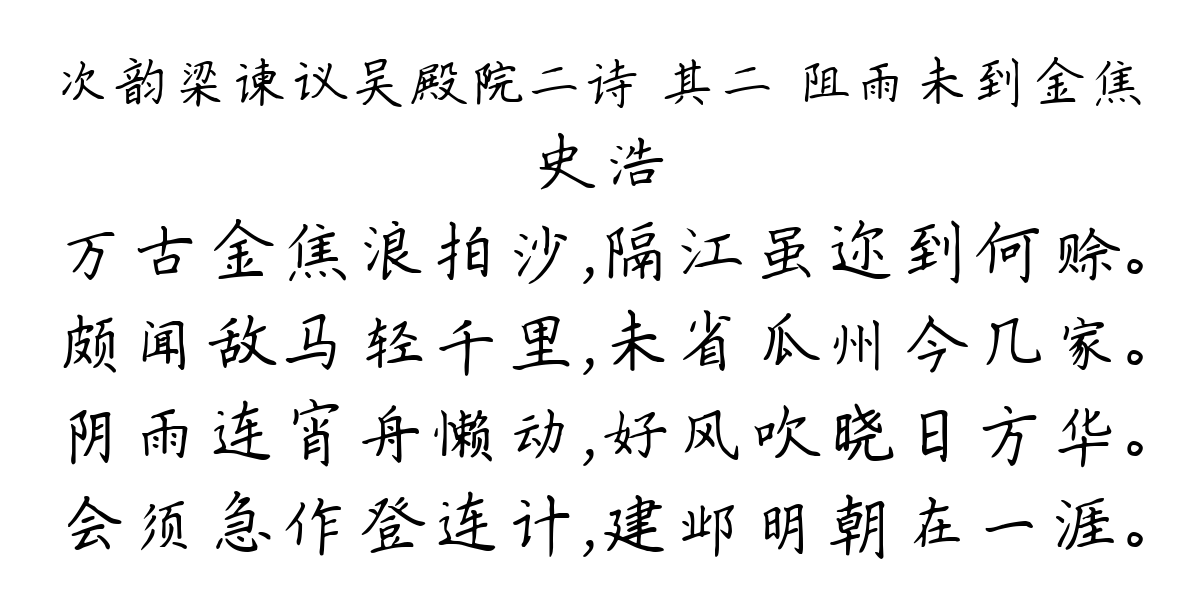 次韵梁谏议吴殿院二诗 其二 阻雨未到金焦
史浩
万古金焦浪拍沙,隔江虽迩到何赊。
颇闻敌马轻千里,未省瓜州今几家。
阴雨连宵舟懒动,好风吹晓日方华。
会须急作登连计,建邺明朝在一涯。